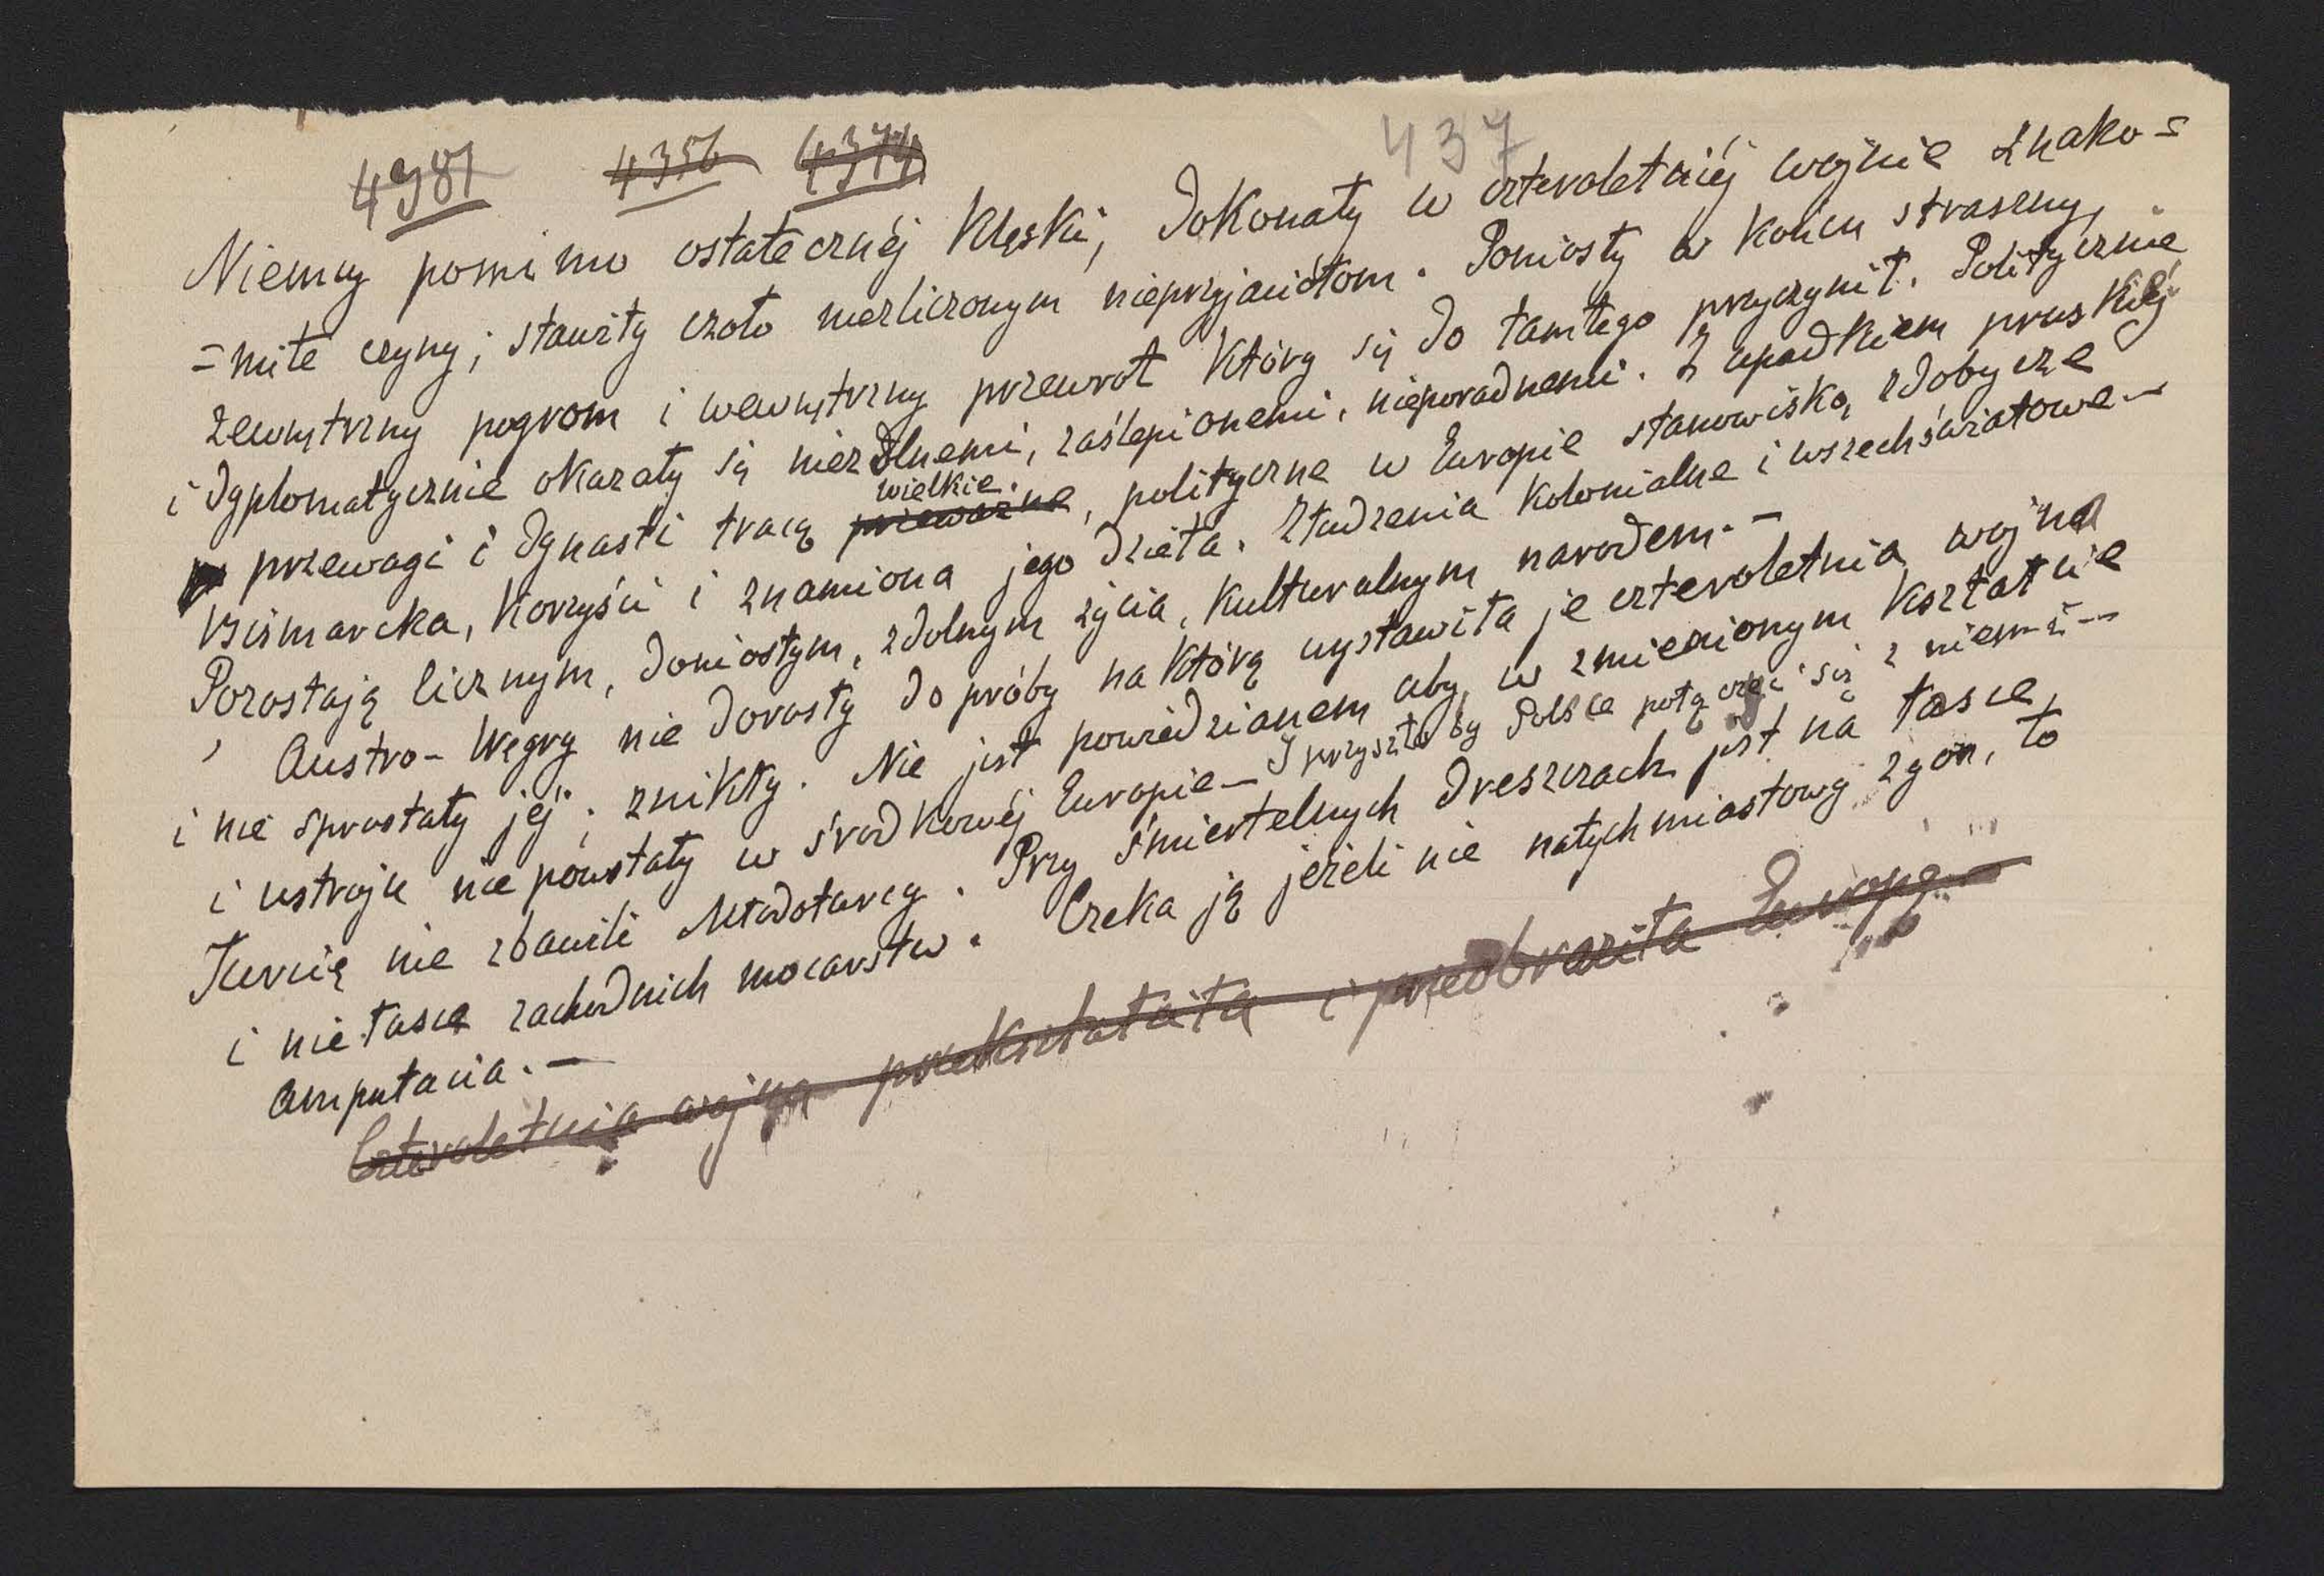 4381 4356 4374 437
Niemcy pomimo ostatecznéj klęski, dokonały w czteroletniéj wojnie znako=
=mite czyny; stawiły czoło niezliczonym nieprzyjaciołom. Poniosły w końcu straszny,
zewnętrzny pogrom i wewnętrzny przewrot który się do tamtego przyczynił. Politycznie
i dyplomatycznie okazały się niezdolnemi, zaślepionemi, nieporadnemi. Z upadkiem pruskiéj
przewagi i dynasti tracą przeważne, polityczne w Europie stanowisko, zdobycze
wielkie.
Bismarcka, korzyści i znamiona jego dzieła. Złudzenia kolonialne i wszechświatowe –
Pozostają licznym, doniosłym, zdolnym życia, kulturalnym narodem. –
Austro-Węgry nie dorosły do próby na którą wystawiła je czteroletnia wojna
i nie sprostały jéj; znikły. Nie jest powiedzianem aby, w zmienionym kształcie
i ustroju nie powstały w środkowéj Europie – I przyszło by Polsce połączyć się z niemi –
Turcię nie zbawili Młodoturcy. Przy śmiertelnych dreszczach jest na łasce,
i niełasce zachodnich mocarstw. Czeka ją jeżeli nie natychmiastowy zgon, to
amputacia. –
Czteroletnia wojna przekształciła i przeobraziła Europę –